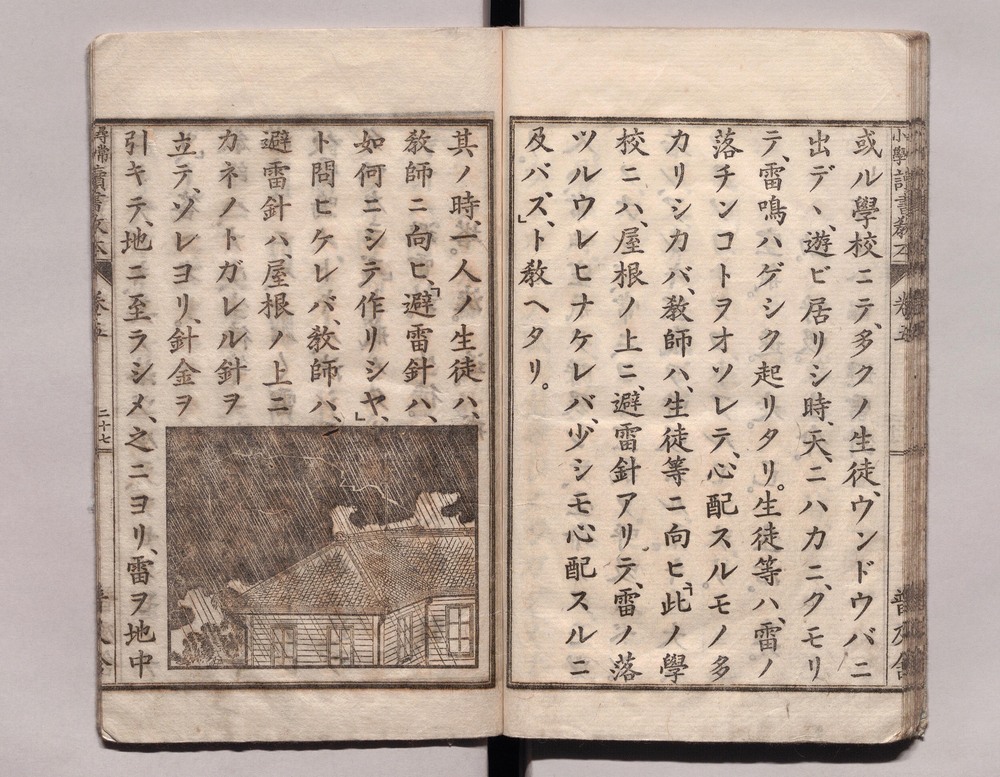 或ル學校ニテ、多クノ生徒、ウンドウバニ
出デヽ、遊ビ居リシ時、天ニハカニ、クモリ
テ、雷鳴ハゲシク起リタリ。生徒等ハ、雷ノ
落チンコトヲオソレテ、心配スルモノ多
カリシカバ、敎師ハ、生徒等ニ向ヒ、「此ノ學
校ニハ、屋根ノ上ニ、避雷針アリテ、雷ノ落
ツルウレヒナケレバ、少シモ心配スルニ
及バズ、」ト敎ヘタリ。
其ノ時、一人ノ生徒ハ、
敎師ニ向ヒ、「避雷針ハ、
如何ニシテ作リシヤ、」
ト問ヒケレバ、敎師ハ、
避雷針ハ、屋根ノ上ニ
カネノトガレル針ヲ
立テ、ソレヨリ、針金ヲ
引キテ、地ニ至ラシメ、之ニヨリ、雷ヲ地中
卷五
二十七